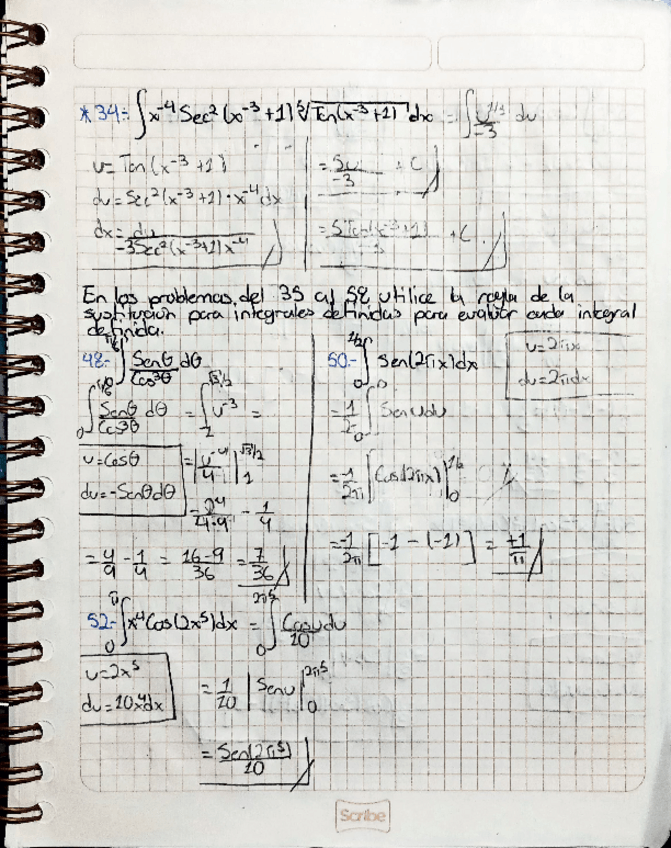 * 34.- ∫x⁻⁴ Sec²(x⁻³+1) ⁵√Tan(x⁻³+1) dx = ∫ u^(1/5)/-3 du
u= Tan(x⁻³+1)
= 5u/-3 + C
du= Sec²(x⁻³+1)·x⁻⁴dx
dx= du/-3Sec²(x⁻³+1)x⁻⁴
+ C
En los problemas del 35 al 58 utilice la regla de la
sustitución para integrales definidas para evaluar cada integral
definida.
48.- ∫₀^(π/6) Senθ/Cos³θ dθ
∫₀^(π/6) Senθ/Cos³θ dθ = ∫₁^(√3/2) u⁻³ =
u=Cosθ
du=-Senθdθ
= |u⁻⁴/4| |₁^(√3/2)
- 1/4
= 4/9 - 1/4 = 16-9/36 = 7/36
50.- ∫₀^(1/2) Sen(2πx)dx
u=2πx
du=2πdx
Sen u du
= -1/2π [Cos(2πx)]₀^(1/2)
= -1/2π [-1-(-1)] = +1/π
52.- ∫₀^π x⁴Cos(2x⁵)dx = ∫₀^(2π⁵) Cosudu/10
u=2x⁵
du=10x⁴dx
= 1/10 |Senu|₀^(2π⁵)
= Sen(2π⁵)/10
Scribe